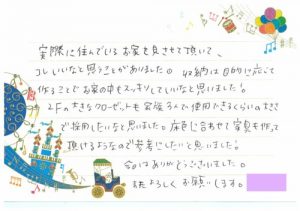 実際に住んでいるお家を見させて頂いて、
コレいいなと思うことがありました。収納は目的に応じて
作ることでお家の中もスッキリしていいなと思いました。
2Fの大きなクローゼットも家族3人で使用できるくらいの大きさ
で採用したいなと思いました。床色に合わせて家具も作って
頂けるようなので参考にしたいと思いました。
今日はありがとうございました。
またよろしくお願いします。